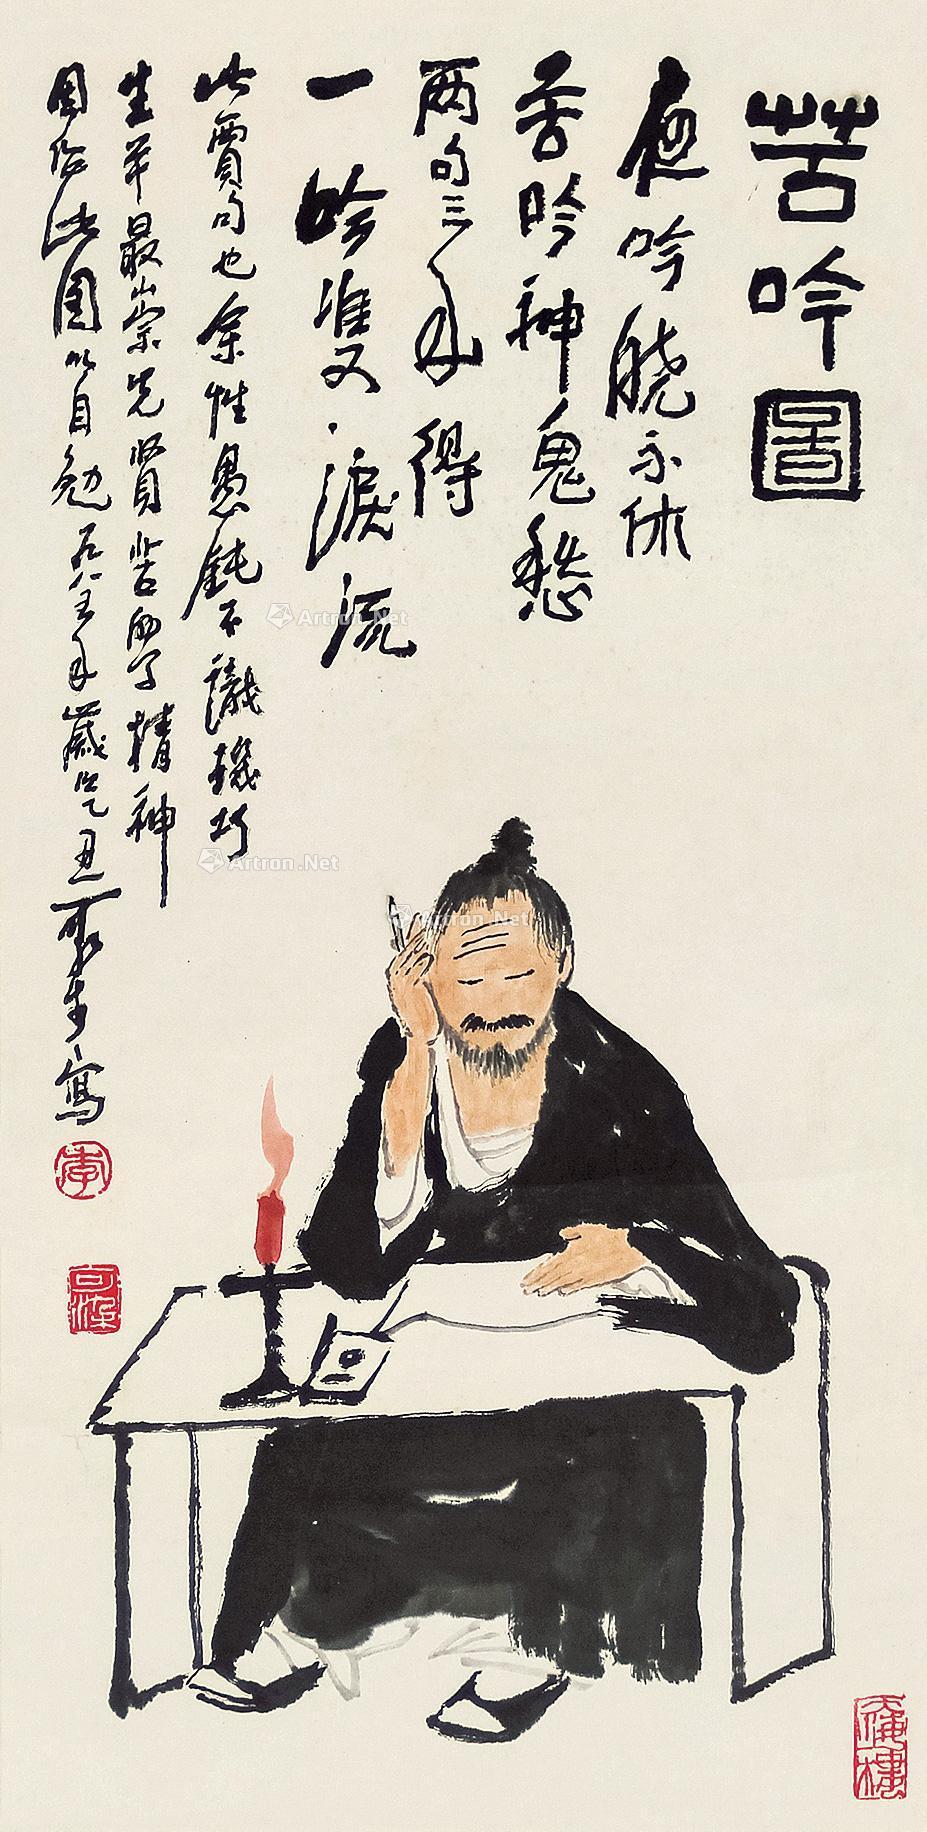 苦吟圖
夜吟曉不休
苦吟神鬼愁
两句三年得
一吟雙淚流
此賈句也余性愚鈍不識機巧
生平最崇先賢苦學精神
因作此圖以自勉 一九八五年歲次乙丑 可染 寫
李
可染
Artron.Net
Artron.Net
Artron.Net